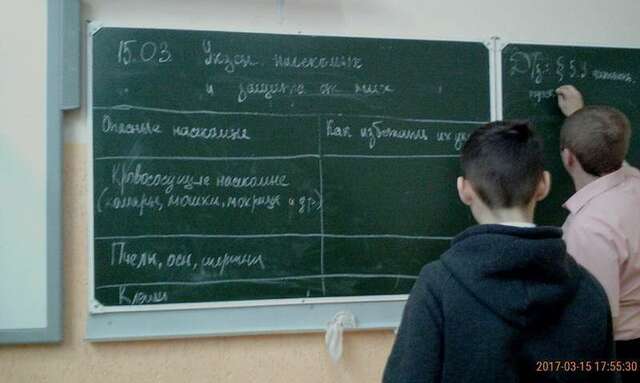 15.03. Укусы насекомых
и защита от них
Опасные насекомые
Как избежать их уку
Кровососущие насекомые
(комары, мошки, мокрица и др)
Пчелы, осы, шершни
Клещи
Д/з: § 5.3
2017-03-15 17:55:30